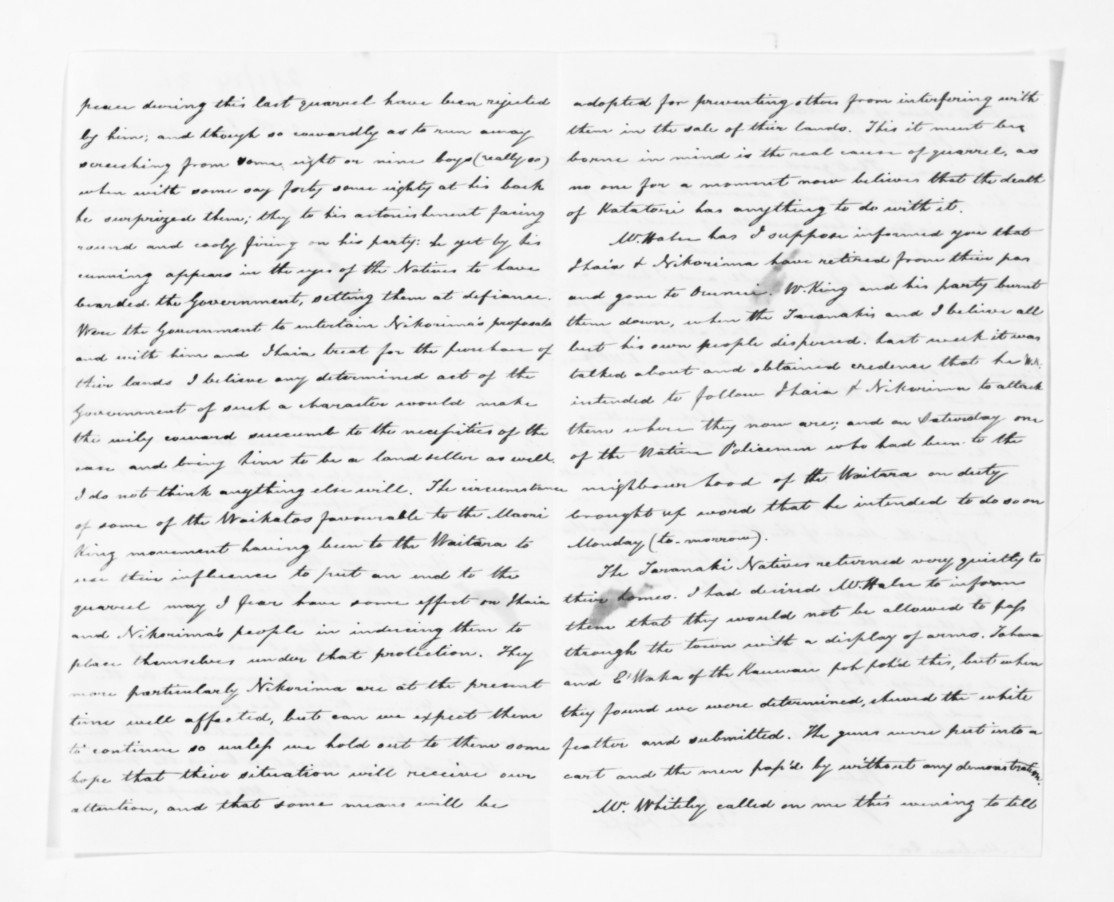 peace during this last quarrel have been rejected
by him; and though so cowardly as to run away
screeching from some, eight or nine boys (really so)
when with some say forty some eighty at his back
he surprized them; they to his astonishment facing
round and cooly firing on his party: he yet by his
cunning appears in the eyes of the Natives to have
bearded the Government, setting them at defiance.
Were the Government to entertain Nikorima's proposals
and with him and Ihaia treat for the purchase of
their lands I believe any determined act of the
Government of such a character would make
the wily coward succumb to the necessities of the
case and bring him to be a land seller as well.
I do not think anything else will. The circumstance
of some of the Waikatos favourable to the Maori
King movement having been to the Waitara to
use their influence to put an end to the
quarrel may I fear have some effect on Ihaia
and Nikorima's people in inducing them to
place themselves under that protection. They
more particularly Nikorima are at the present
time well affected, but can we expect them
to continue so unless we hold out to them some
hope that their situation will receive our
attention, and that some means will be
adopted for preventing others from interfering with
them in the sale of their lands. This it must be
borne in mind is the real cause of quarrel, as
no one for a moment now believes that the death
of Katatori has anything to do with it.
Mr. Halse has I suppose informed you that
Ihaia & Nikorima have retired from their pas
and gone to W. King and his party burnt
them down, when the Taranakis and I believe all
but his own people dispersed. Last week it was
talked about and obtained credence that he
intended to follow Ihaia & Nikorima to attack
them where they now are; and on Saturday one
of the Native Policemen who had been to the
neighbourhood of the Waitara on duty
brought up word that he intended to do so on
Monday (to-morrow).
The Taranaki Natives returned very quietly to
their homes. I had desired Mr. Halse to inform
them that they would not be allowed to pass
through the town with a display of arms. Tahana
and E Waka of the Kauwau poh poh'd this, but when
they found we were determined, shewed the white
feather and submitted. The guns were put into a
cart and the men pass'd by without any demonstration.
Mr. Whiteley called on me this evening to tell